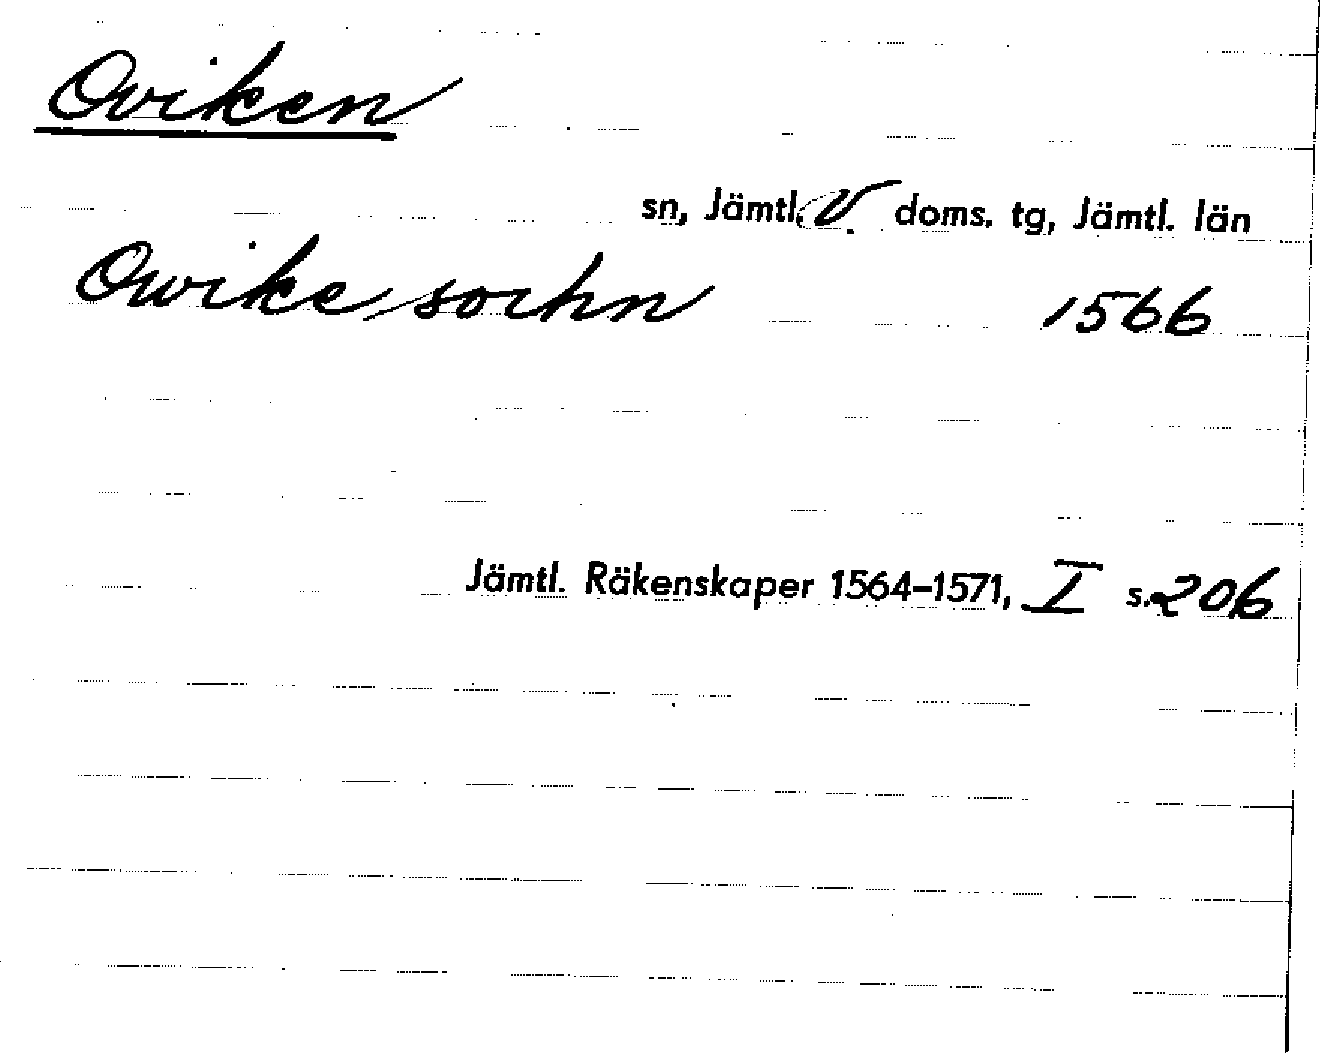 Oviken
sn, Jämtl. V. doms. tg, Jämtl. län
Owike sochn 1566
Jämtl. Räkenskaper 1564–1571, I s. 206